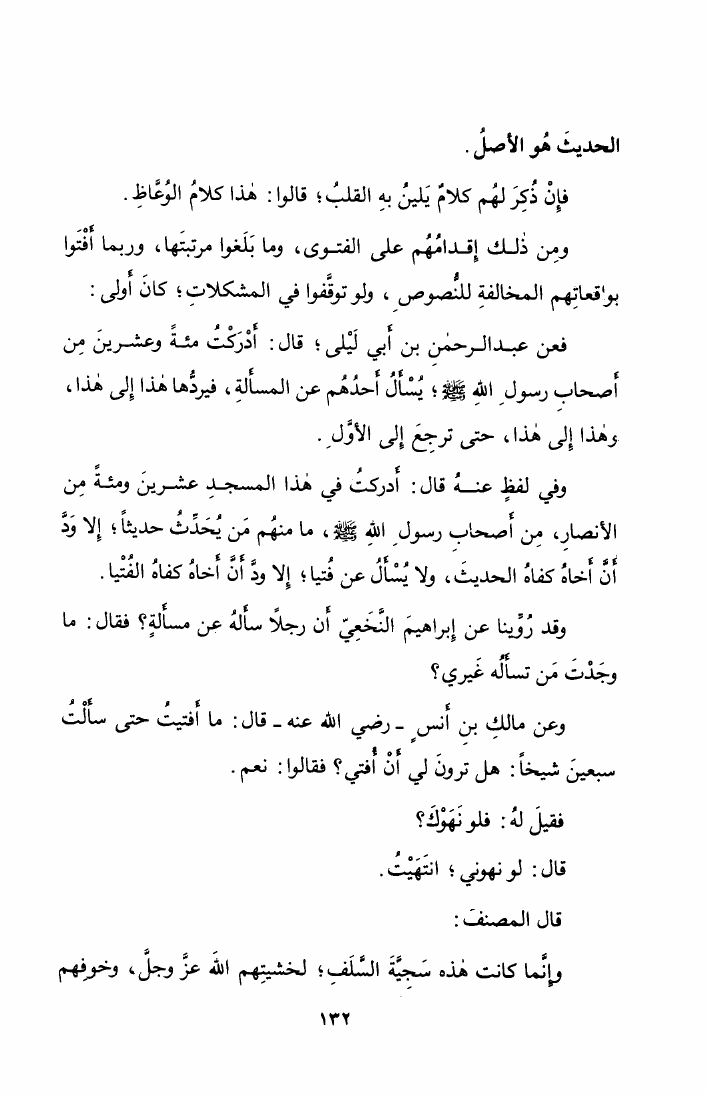 الحديثَ هُو الأصلُ.
فإنْ ذُكِرَ لهُم كلامٌ يَلينُ بهِ القلبُ؛ قالوا: هٰذا كلامُ الوُعَّاظِ.
ومِن ذٰلك إقدامُهُم على الفتوى، وما بَلَغوا مرتبتَها، وربما أَفْتَوا
بواقعاتِهم المخالفةِ للنُّصوصِ، ولو توقَّفوا في المشكلاتِ؛ كانَ أَولى:
فعن عبدالرحمٰنِ بن أَبي لَيْلى؛ قال: أَدْرَكْتُ مئةً وعشرينَ مِن
أَصحابِ رسولِ اللهِ ﷺ؛ يُسْأَلُ أَحدُهُم عن المسألةِ، فيردُّها هٰذا إلى هٰذا،
وهٰذا إلى هٰذا، حتى ترجِعَ إلى الأوَّلِ.
وفي لفظٍ عنهُ قال: أَدركتُ في هٰذا المسجدِ عشرينَ ومئةً مِن
الأنصارِ، مِن أَصحابِ رسولِ اللهِ ﷺ، ما منهُم مَن يُحَدِّثُ حديثاً؛ إلا وَدَّ
أَنَّ أَخاهُ كفاهُ الحديثَ، ولا يُسْأَلُ عن فُتيا؛ إلا ودَّ أَنَّ أَخاهُ كفاهُ الفُتْيا.
وقد رُوِّينا عن إبراهيمَ النَّخَعِيّ أَن رجلاً سألهُ عن مسألةٍ؟ فقال: ما
وجَدْتَ مَن تسألُه غَيري؟
وعن مالكِ بنِ أَنسٍ ـ رضي الله عنه ـ قال: ما أَفتيتُ حتى سألْتُ
سبعينَ شيخاً: هل ترونَ لي أَنْ أُفتي؟ فقالوا: نعم.
فقيلَ لهُ: فلو نَهَوْكَ؟
قال: لو نهوني؛ انتَهَيْتُ.
قال المصنفُ:
وإنَّما كانت هٰذه سَجِيَّةَ السَّلَفِ؛ لخشيتِهم اللهَ عزَّ وجلَّ، وخوفِهم
١٣٢